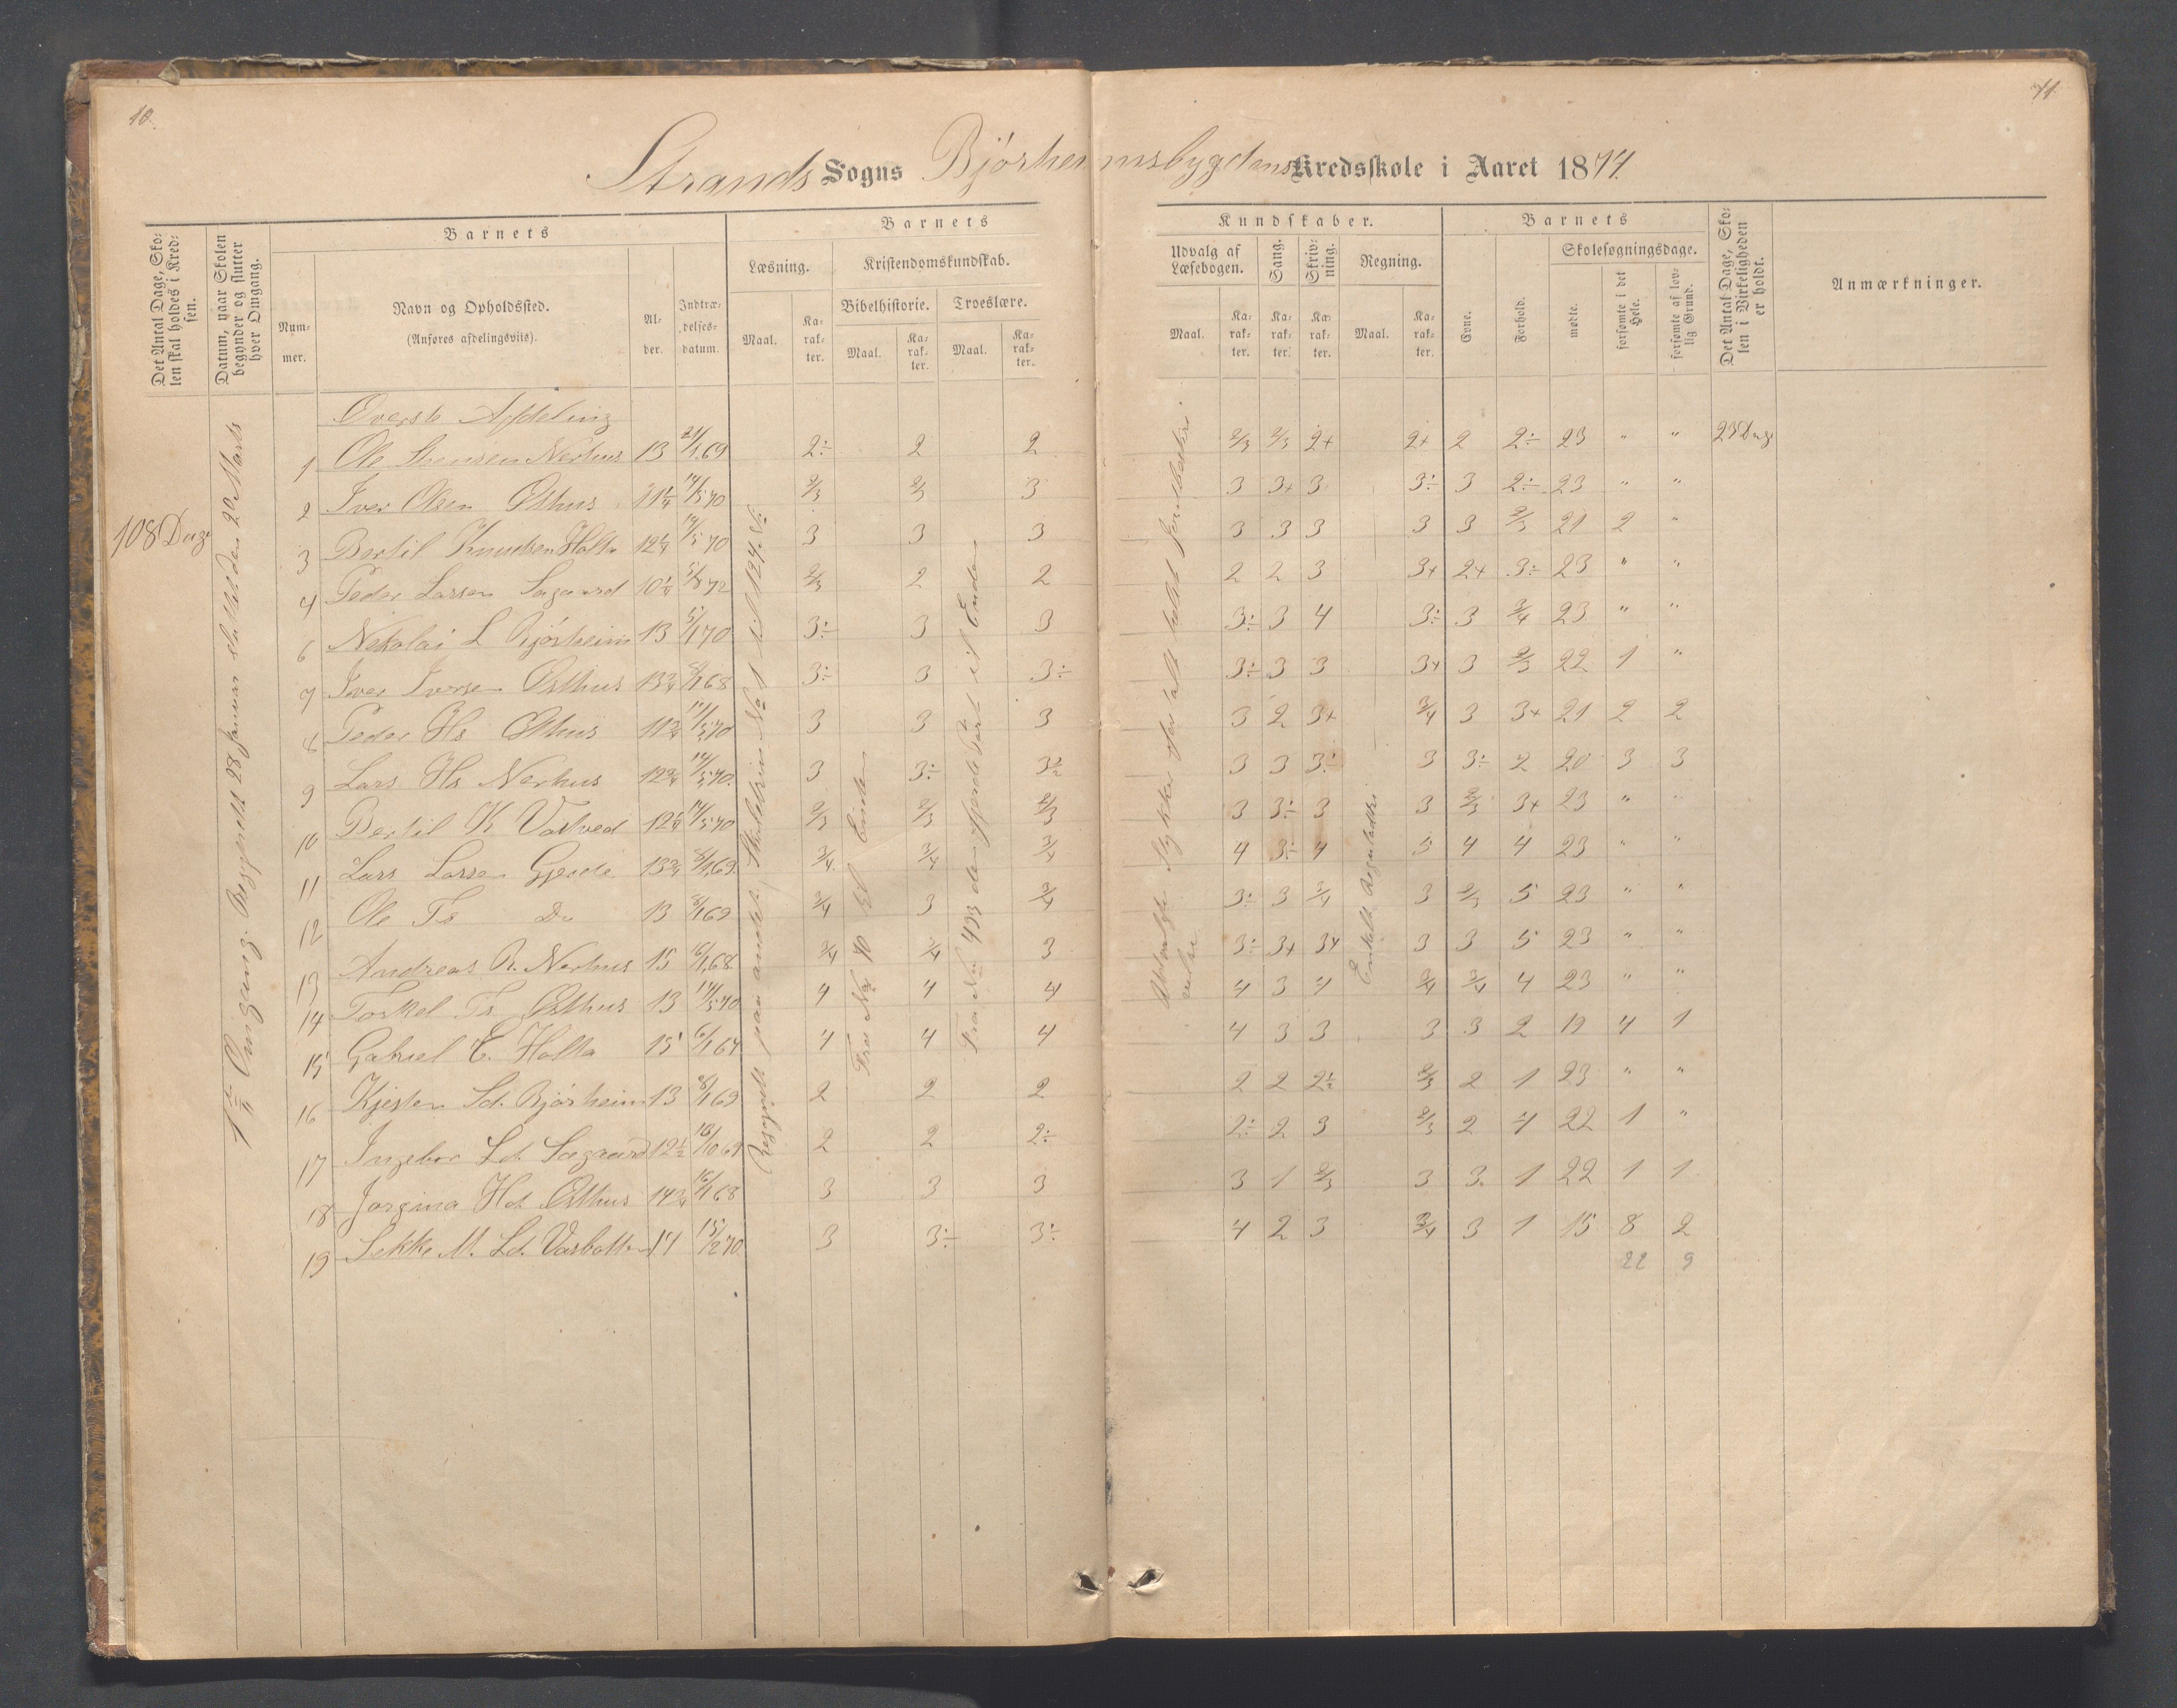 10.
11.
Strands Sogns Bjørheimsbygdens Kredsskole i Aaret 1874.
Det Antal Dage, Skolen skal holdes i Kredsen.
Datum, naar Skolen begynder og slutter hver Omgang.
Barnets
Nummer.
Navn og Opholdssted.
(Anføres afdelingsviis).
Alder.
Indtrædelsesdatum.
Barnets
Læsning.
Maal.
Karakter.
Kristendomskundskab.
Bibelhistorie.
Maal.
Karakter.
Troeslære.
Maal.
Karakter.
Kundskaber.
Udvalg af Læsebogen.
Maal.
Karakter.
Sang.
Karakter.
Skrivning.
Karakter.
Regning.
Maal.
Karakter.
Barnets
Evne.
Forhold.
Skolesøgningsdage.
mødte.
forsømte i det Hele.
forsømte af lovlig Grund.
Det Antal Dage, Skolen i Virkeligheden er holdt.
Anmærkninger.
108 Dage
1ste Omgang. Begyndt 28 Januar sluttet den 20 Marts
Øverste Afdeling
1 Ole Nerhus 13 21/1 69 2÷ 2 2 2/3 2/3 2+ 2+ 2 2÷ 23 " " 23 Dage
2 Iver Olsen Østhus 11 1/4 14/5 70 2/3 2/3 3 3 3+ 3 3÷ 3 2÷ 23 " "
3 Bertil Knudsen Holta 12 1/4 14/5 70 3 3 3 3 3 3 3 3 2/3 21 2 "
4 Peder Larsen Sagaard 10 1/4 5/8 72 2/3 2 2 2 2 3 3+ 2+ 3÷ 23 " "
6 Nikolai L Bjørheim 13 5/1 70 3÷ 3 3 3÷ 3 4 3÷ 3 3/4 23 " "
7 Iver Iversen Østhus 13 3/4 8/1 68 3÷ 3 3÷ 3÷ 3 3 3+ 3 2/3 22 1 "
8 Peder Hs Østhus 11 3/4 14/5 70 3 3 3 3 2 3+ 3/4 3 3+ 21 2 2
9 Lars Hs Nerhus 12 3/4 14/5 70. 3 3÷ 3÷ 3 3 3÷ 3 3÷ 2 20 3 3
10 Bertil K Vastved 12 1/4 14/5 70 2/3 2/3 2/3 3 3÷ 3 3 2/3 3+ 23 " "
11 Lars Larsen Gjerde 13 3/4 8/1 69. 3/4 3/4 3/4 4 3÷ 4 3 4 4 23 " "
12 Ole Ts Do 13 8/1 69 3/4 3 3/4 3÷ 3 3/4 3 2/3 5 23 " "
13 Andreas R. Nerhus 15 16/1 68 3/4 3/4 3 3÷ 3+ 3+ 3 3 5 23 " "
14 Torkel Ts Østhus 13 14/5 70 4 4 4 4 3 4 3/4 3/4 4 23 " "
15 Gabriel E. Holta 15 6/1 67 4 4 4 4 3 3 3 3 2 19 4 1
16 Kjesten Sd. Bjørheim 13 8/1 69 2 2 2 2 2 2÷ 2/3 2 1 23 " "
17 Ingebor Ld. Sagaard 12 1/2 18/10 69 2 2 2÷ 2÷ 2 3 2/3 2 4 22 1 "
18 Jorgina Hd. Østhus 14 3/4 16/1 68 3 3 3 3 1 2/3 3 3. 1 22 1 1
19 Sekke M. Ld. Vasbotten 14 15/12 70 3 3÷ 3÷ 4 2 3 3/4 3 1 15 8 2
22 9
Begyndt paa andet Skuldetrin No 1 til 124 No
Fra No 70 til Enden
Fra No 493 den fjerde Part til Enden
Stykker
Enkelt Reguladetri